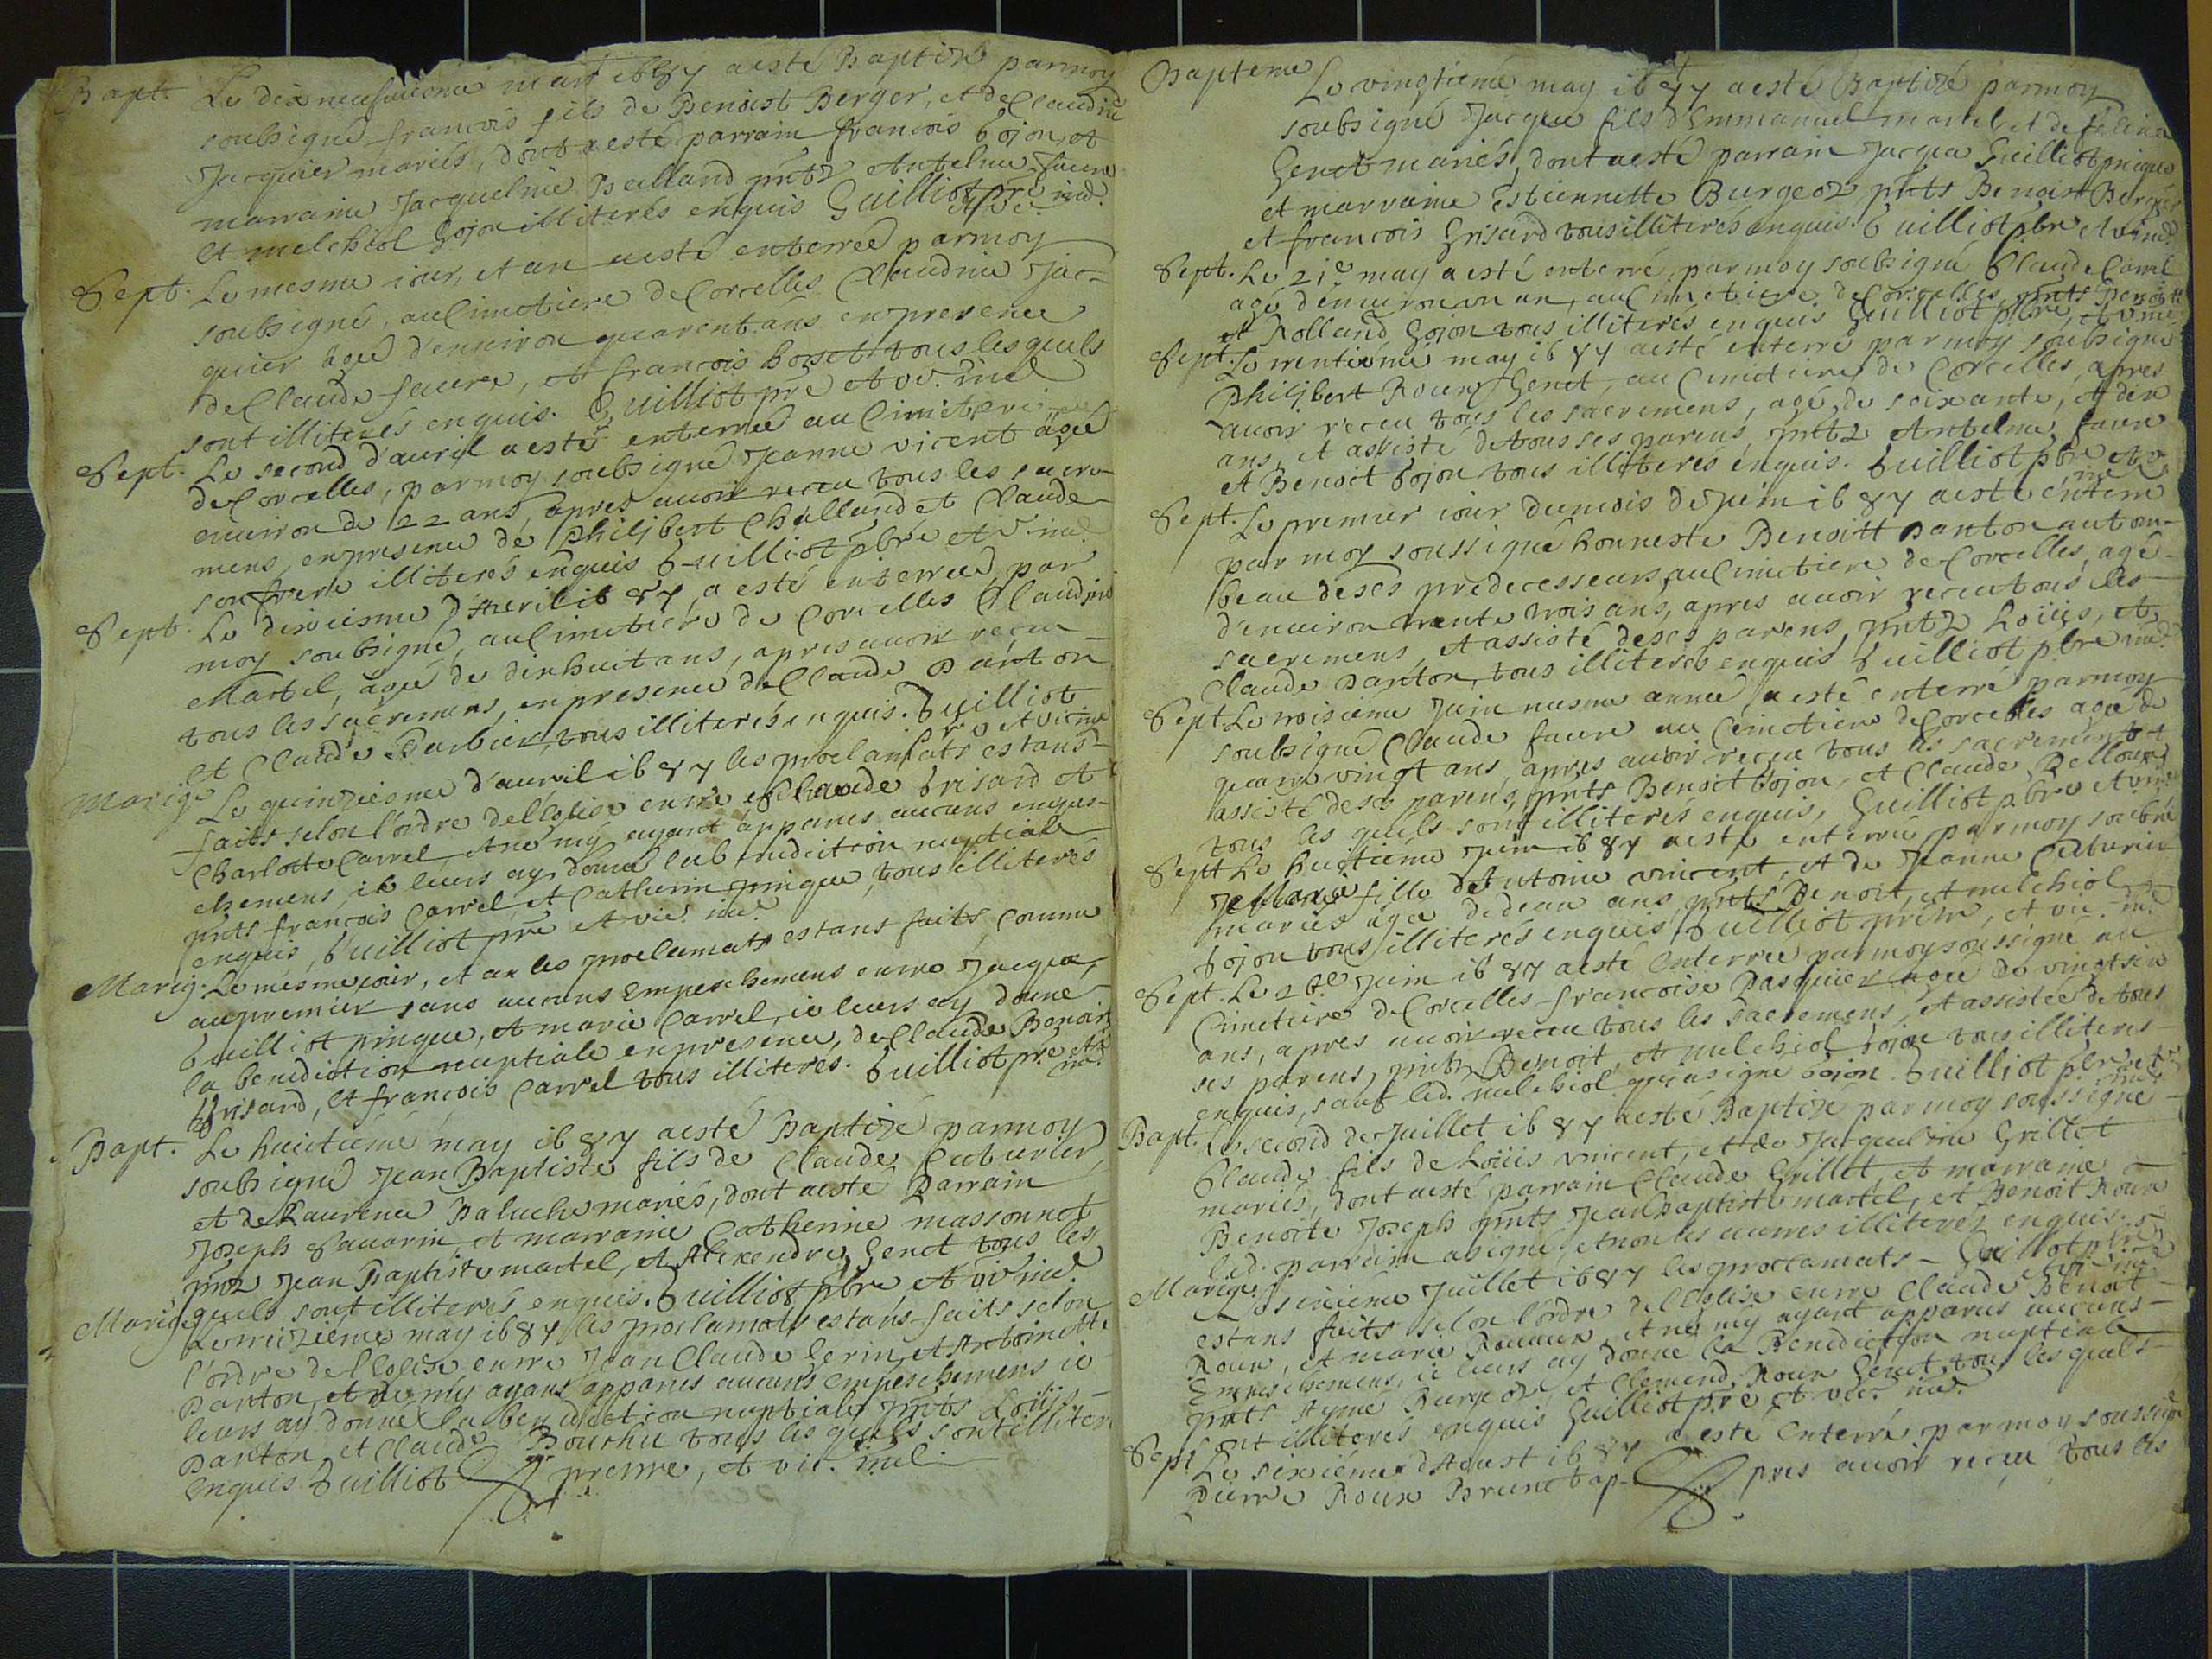 Bapt. Le dixneufviesme mars 1687 a esté Baptizé par moy
soubsigné francois fils de Benoist Berger, et de Claudine
Jacquier mariés, dont a esté parrain francois Gojon, et
marraine Jacqueline Balland pñtz Antelme faure
et melchiol Gojon illiterés enquis Guilliot pre et vic. ind.
Sept. Le mesme iour, et an a esté enterreé par moy
soubsigné, au Cimetiere de Corcelles Claudine Jac-
quier ageé d'environ quarent ans en presence
de Claude faure, et francois tous lesquels
sont illiterés enquis. Guilliot pre et vic. ind
Sept. Le second d'auril a esté enterreé au Cimetiere
de Corcelles, par moy soubsigné Jeanne vicent ageé
enuiron de 22 ans, apres auoir receu tous les sacre-
mens, en presence de Philibert Challand et Claude
son frere illiterés enquis Guilliot pbre et v. ind.
Sept. Le dixiesme d'Avril 1687, a esté enterreé par
moy soubsigné, au Cimetiere de Corcelles Claudine
Martel, ageé de dixhuit ans, apres auoir receu
tous les sacremens, en presence de Claude Danton
et Claude Barbier, tous illiterés enquis. Guilliot
pre et vic ind
Mariage Le quinziesme d'auvril 1687 les proclamats estans
faits selon l'ordre de l'Eglise entre Claude Grisard et
Charlotte Carrel et ne my ayant apparus aucuns enpes-
chemens, ie leurs ay donné la benediction nuptiale
pñts francois Carrel, et Catherin pingue, tous illiterés
enquis, Guilliot pre et vic. ind.
Mariag. Le mesme iour, et an les proclamats estans faits, comme
au premier sans aucuns empeschemens entre Jacque
Guilliot pingue, et marie Carrel, ie leurs ay donné
la benediction nuptiale en presence, de Claude Benoit
Grisard, et francois Carrel tous illiterés. Guilliot pre et v.
ind.
Bapt. Le huictiéme may 1687 a esté Baptizé par moy
soubsigné Jean Baptiste fils de Claude Cuturier,
et de Laurence Paluche mariés, dont a esté Parrain
Joseph Sauarin, et marraine Catherine massonnet
pñtz Jean Baptiste martel, et Alexendre Genet tous les
quels sont illiterés enquis. Guilliot pbre et vic ind.
Mariage Le treiziéme may 1687 les proclamats estans faits selon
l'ordre de l'Eglise entre Jean Claude Gerin, et Antoinette
Danton, et ne my ayans apparus aucuns empeschemens ie
leurs ay donné la benediction nuptiale pñts Loüis
Danton, et Claude Bouchu tous les quels sont illiter
enquis Guilliot prettre, et vic. ind.
Bapteme Le vingtiéme may 1687 a esté Baptizé par moy
soubsigné Jacque fils d'Emmanuel martel, et de feline
Genet mariés, dont a esté parrain Jacque Guilliot pingue
et marraine Estiennette Burgeoz, pñts Benoist Berger
et francois Grisard tous illiterés enquis. Guilliot pbre et v ind.
Sept. Le 21e may a esté enterré, par moy soubsigné Claude Carrel
agé d'enuiron un an, au Cimetiere de Corcelles, pñts Benoitt
et Rolland Gojon tous illiterés enquis Guilliot pbre, et v. ind
Sept. Le trentiéme may 1687 a esté enterré par moy soubsigné
Philibert Roux Genet, au Cimetiere de Corcelles, apres
auoir receu tous les sacremens, agé de soixante, et dix
ans, et assisté de tous ses parens, pñtz Antelme faure
et Benoit Gojon tous illiterés enquis. Guilliot pbre et v
ind
Sept. Le premier iour du mois de Juin 1687 a esté enterré
par moy soussigné honneste Benoitt Danton au tom-
beau de ses predecesseurs, au Cimetiere de Corcelles, agé
d'enuiron trente trois ans, apres auoir receu tous les
sacremens, et assisté de ses parens, pñtz Loüis, et
Claude Danton, tous illiterés enquis Guilliot pbre ind.
Sept Le troisiéme Juin mesme anneé a esté enterré par moy
soubsigné Claude faure au Cimetiere de Corcelles agé de
quatre vingt ans, apres auoir receu tous les sacrements
assisté de ses parens, pñts Benoit Gojon, et Claude Belloux
tous les quels sont illiterés enquis, Guilliot pbre et v ind
Sept Le huictiéme Juin 1687 a esté enterreé par moy soubné
Marie fille d'Antoine vincent, et de Jeanne Cuturier
mariés ageé de deux ans, pñts Benoit, et melchiol
Gojon tous illiterés enquis, Guilliot prêtre, et vic. ind.
Sept. Le Juin 1687 a esté enterreé par moy soussigné au
Cimetiere de Corcelles francoise Pasquier ageé de vingtsix
ans, apres auoir receu tous les sacremens, et assisteé de tous
ses parens, pñtz Benoit, et melchiol Gojon tous illiteres
enquis, sauf led. melchiol qui a signé Gojon Guilliot pbre et v
ind
Bapt. Le second de Juillet 1687 a esté Baptizé par moy soussigné
Claude fils de Loüis vincent, et de Jacqueline Grillet
mariés, dont a esté parrain Claude Grillet, et marraine
Benoite Joseph pñts Jean Baptiste martel, et Benoit Roux
led. parrain a signé, et non les autres illiterés enquis.
Guilliot pbre et vic ind
Mariage Le sixiéme Juillet 1687 les proclamats
estans faits selon l'ordre de l'Eglise entre Claude Benoit
Roux, et marie, et ne my ayant apparus aucuns
Empeschemens, ie leurs ay donné la Benediction nuptiale
pñts Ayme Burgeoz, et Clemend Roux Genet, tous les quels
sont illiterés enquis Guilliot pre et vic. ind.
Sept Le sixiéme d'Aoust 1687 a esté Enterré par moy soussigné
Pierre Roux Brunet ap- pres auoir receu tous les